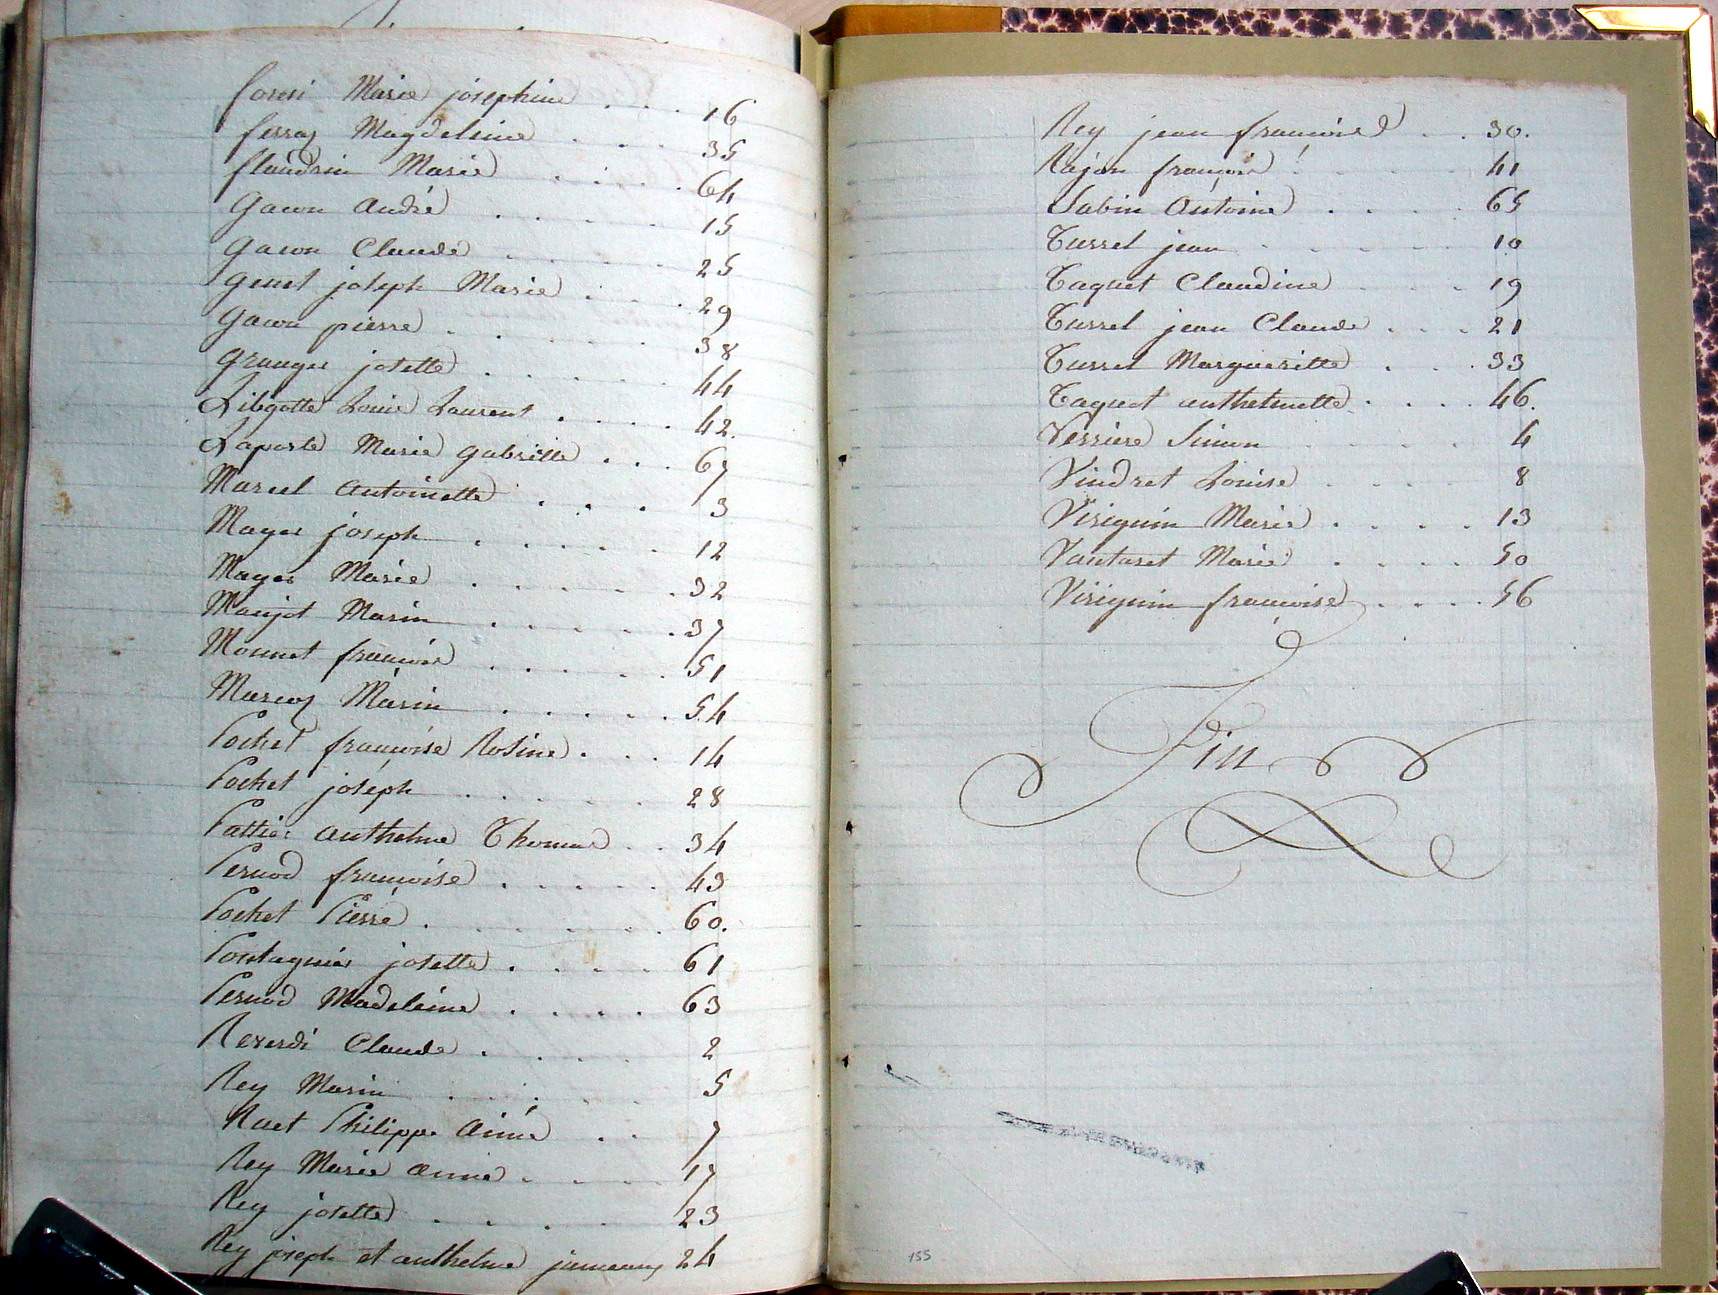 foresi Marie josephine . . . . 16
ferraz Magdeleine . . . . 35
flaudrin Marie . . . . 64
gacon andré . . . . . 15
gacon Claude . . . . . 25
genet joseph Marie . . . . 29
gacon pierre . . . . . 38
granger josette . . . . . 44
Libgotte Louis Laurent . . . . . 42.
Laporte Marie gabrille . . . 67
Marcel antoinette . . . 3
Mager joseph . . . . . 12
Mager Marie . . . . . 32
Maujot Marin . . . . . 37
Monnet françois . . . . . 51
Marcoz Marin . . . . . 54
Pochet françoise Rosine . . . 14
Pochet joseph . . . . . 28
Pattier anthelme Thomas . . 34
Pernod françoise . . . . . 43
Pochet Pierre . . . . . 60.
Pontagnier josette . . . . 61
Pernod Madeleine . . . . 63
Reverdi Claude . . . . 2
Rey Marin . . . . . 5
Ruet Philippe aimé . . 7
Rey Marie anne . . . . 17
Rey josette . . . . 23
Rey joseph et anthelme jumeaux 24
Rey jean françois . . 30.
Rajon françois . . . . 41
Sabin Antoine . . . . 65
Turrel jean . . . . . 10
Taquet Claudine . . . 19
Turrel jean Claude . . . 21
Turrel Margueritte . . . 33
Taquet anthelmette . . . . 46.
Verriere Simon . . . . 4
Vindret Louise . . . . 8
Viriguin Marie . . . . 13
Vautaret Marie . . . . 50
Viriguin françoise . . . . 56
Fin
155